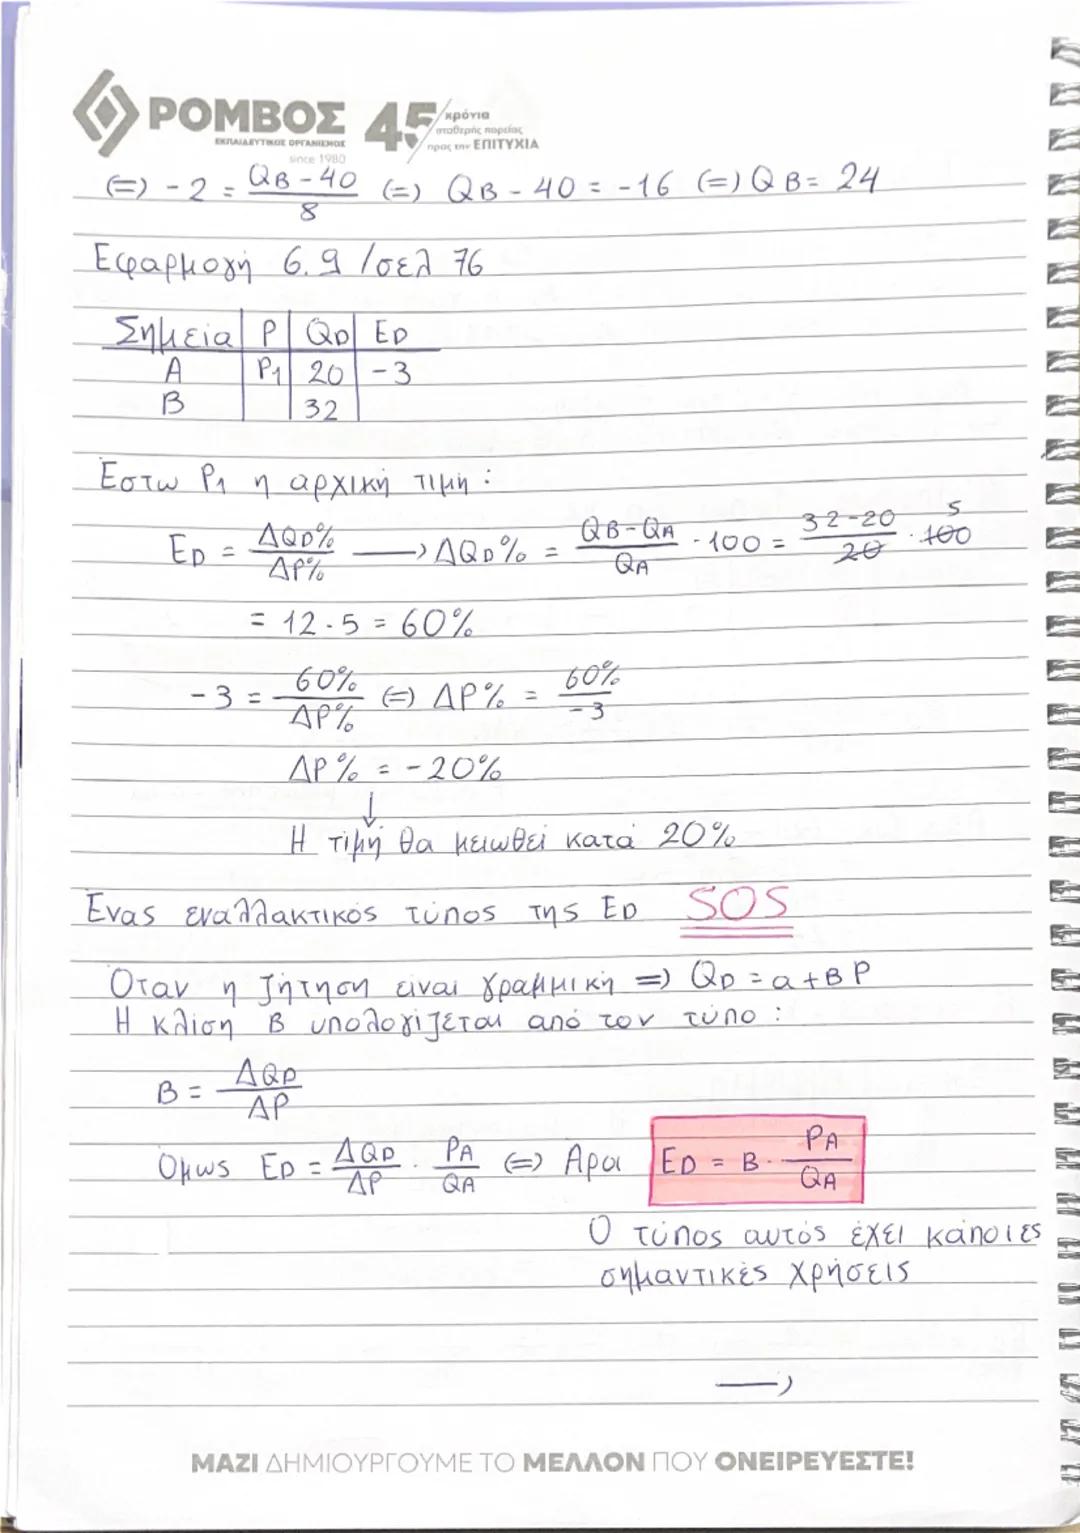 ΡΟΜΒΟΣ 45 χρόνια
σταθερής πορείας
ΕΚΠΑΙΔΕΥΤΙΚΟΣ ΟΡΓΑΝΙΣΜΟΣ προς την ΕΠΙΤΥΧΙΑ
since 1980
(=) -2 = (QB - 40)/8 (=) QB - 40 = -16 (=) QB = 24
Εφαρμογή 6.9 / σελ 76
Σημεία | P | QD | ED
A | P1 | 20 | -3
B | | 32 |
Έστω P1 η αρχική τιμή :
ED = ΔQD%/ΔP% —> ΔQD% = (QB-QA)/QA · 100 = (32-20)/20 · 100 5
= 12 · 5 = 60%
-3 = 60%/ΔP% (=) ΔP% = 60%/-3
ΔP% = -20%
↓
Η τιμή θα μειωθεί κατά 20%
Ένας εναλλακτικός τύπος της ED SOS
Όταν η ζήτηση είναι γραμμική => QD = a + B P
Η κλίση B υπολογίζεται από τον τύπο :
B = ΔQD/ΔP
Όμως ED = ΔQD/ΔP · PA/QA (=) Άρα ED = B · PA/QA
Ο τύπος αυτός έχει κάποιες
σημαντικές χρήσεις
—>
ΜΑΖΙ ΔΗΜΙΟΥΡΓΟΥΜΕ ΤΟ ΜΕΛΛΟΝ ΠΟΥ ΟΝΕΙΡΕΥΕΣΤΕ!